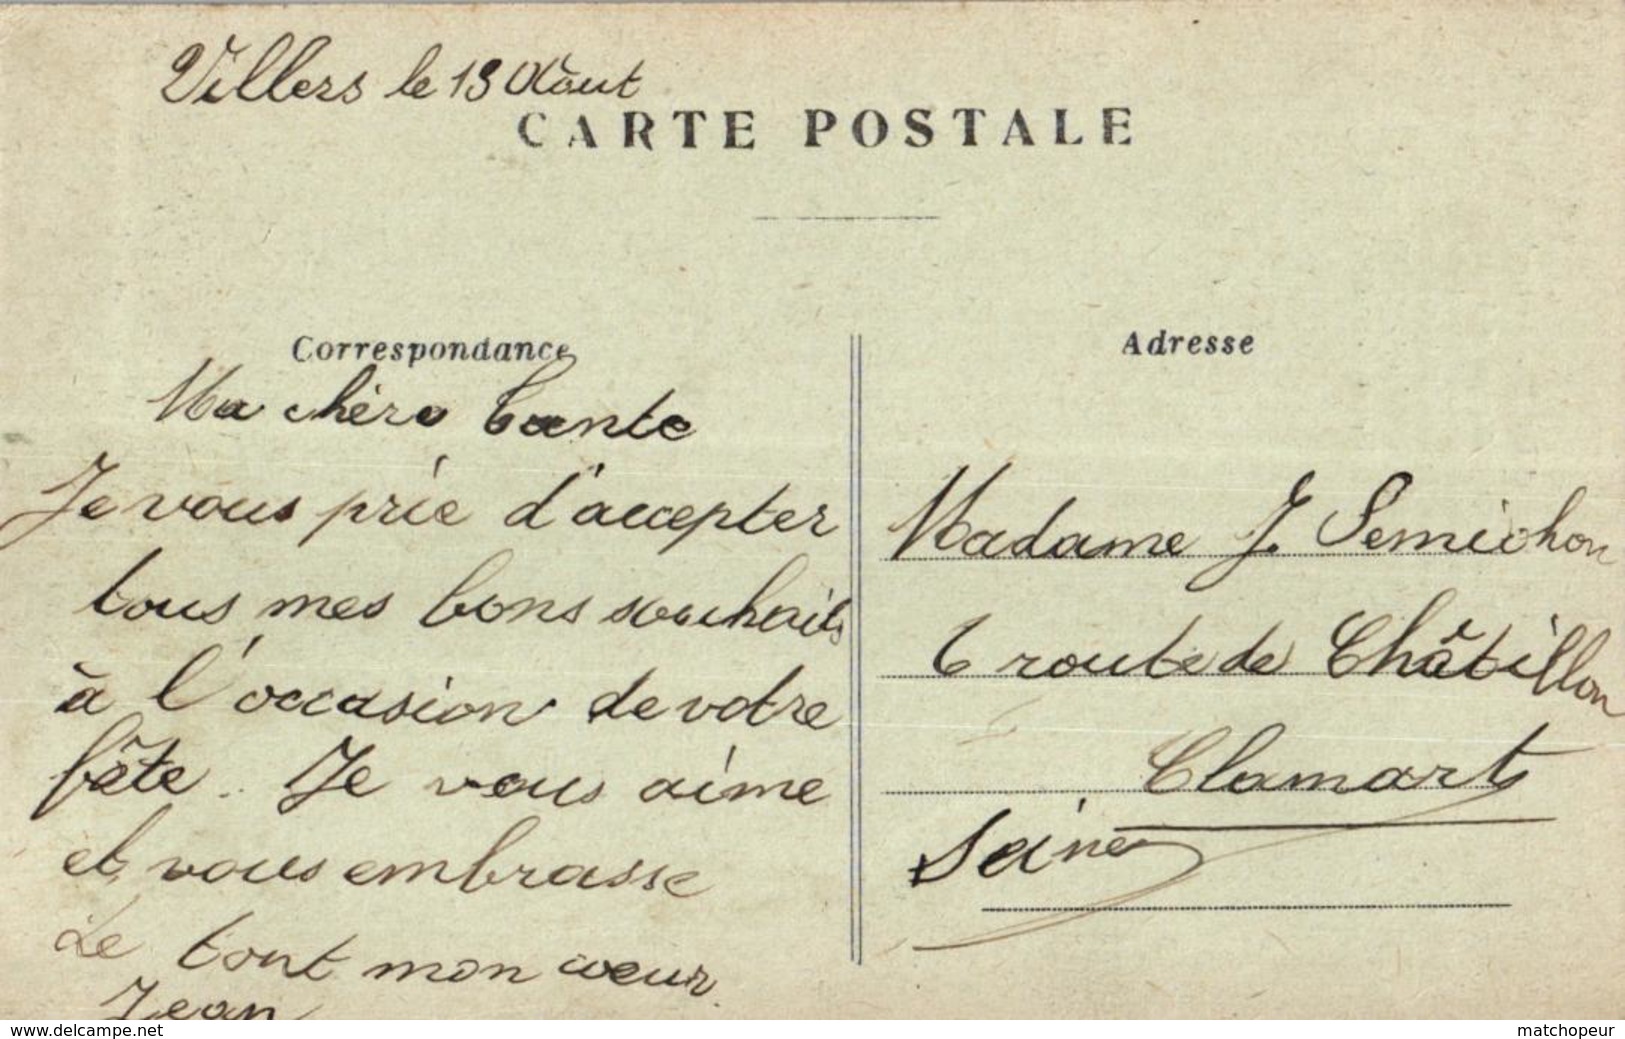 Villers le 13 Août
CARTE POSTALE
Correspondance
Ma chère tante
Je vous prie d'accepter
tous mes bons souhaits
à l'occasion de votre
fête. Je vous aime
et vous embrasse
de tout mon cœur.
Jean
Adresse
Madame J. Semichon
6 route de Châtillon
Clamart
Seine
www.delcampe.net
matchopeur